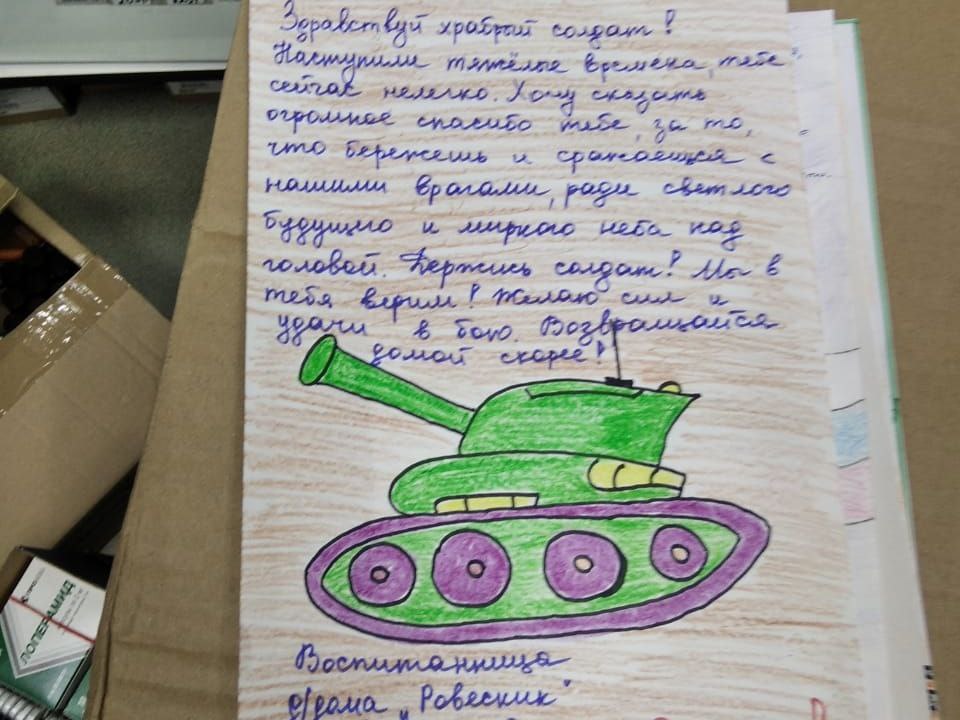 Здравствуй храбрый солдат!
Наступили тяжёлые времена, тебе
сейчас нелегко. Хочу сказать
огромное спасибо тебе, за то,
что бережешь и сражаешься с
нашими врагами, ради светлого
будущего и мирного неба над
головой. Держись солдат! Мы в
тебя верим! Желаю сил и
удачи в бою. Возвращайся
домой скорее!
Воспитанница
д/дома „Ровесник"
ЛОПЕРАМИД